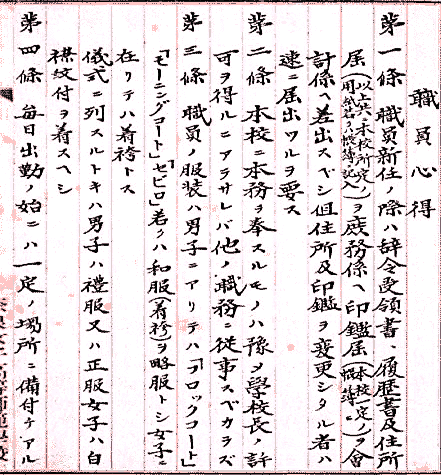 職員心得
第一條 職員新任ノ際ハ辞令受領書、履歴書及住所
届(以上共ニ本校所定ノ用紙名ノ帳簿記入)ヲ庶務係ヘ印鑑届(本校一定ノ帳簿ニ)ヲ會
計係ヘ差出スベシ但住所及印鑑ヲ変更シタル者ハ
速ニ届出ツルヲ要ス
第二條 本校ニ本務ヲ奉スルモノハ豫メ学校長ノ許
可ヲ得ルニアラサレバ他ノ職務ニ従事スベカラズ
第三條 職員ノ服装ハ男子ニアリテハ「フロックコート」
「モーニングコート」「セビロ」若クハ和服(着袴)ヲ略服トシ女子ニ
在リテハ着袴トス
儀式ニ列スルトキハ男子ハ禮服又ハ正服女子ハ白
襟紋付ヲ着スヘシ
第四條 毎日出勤ノ始ニハ一定ノ場所ニ備付テアル